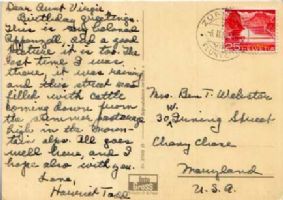 Dear Aunt Virgie
Birthday greetings.
This is my
Appenzell and a good
picture it is too. The
last time I was
there, it was raining
and this street was
filled with cattle
coming down from
the summer pasturage
high in the moun-
tain alps. All goes
well here, and I
hope also with you.
Love,
Harriet Tall
HELVETIA
25
Mrs. Ben T. Webster
30 W. Irving Street
Chevy Chase
Maryland
U.S.A.
Gross